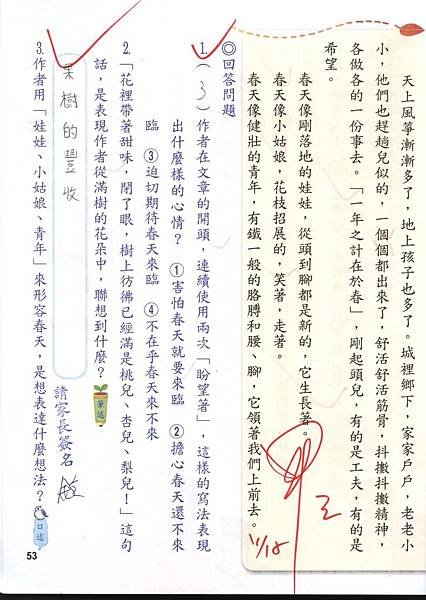 天上風箏漸漸多了，地上孩子也多了。城裡鄉下，家家戶戶，老老小
小，他們也趕趟兒似的，一個個都出來了，舒活舒活筋骨，抖擻抖擻精神，
各做各的一份事去。「一年之計在於春」，剛起頭兒，有的是工夫，有的是
希望。
春天像剛落地的娃娃，從頭到腳都是新的，它生長著。
春天像小姑娘，花枝招展的，笑著，走著。
春天像健壯的青年，有鐵一般的胳膊和腰、腳，它領著我們上前去。
11/18
◎回答問題
1.（3）作者在文章的開頭，連續使用兩次「盼望著」，這樣的寫法表現
出什麼樣的心情？ ①害怕春天就要來臨 ②擔心春天還不來
臨 ③迫切期待春天來臨 ④不在乎春天來不來
2.「花裡帶著甜味，閉了眼，樹上彷彿已經滿是桃兒、杏兒、梨兒！」這句
話，是表現作者從滿樹的花朵中，聯想到什麼？ 筆述
果樹的豐收
請家長簽名
3.作者用「娃娃、小姑娘、青年」來形容春天，是想表達什麼想法？ 口述
53